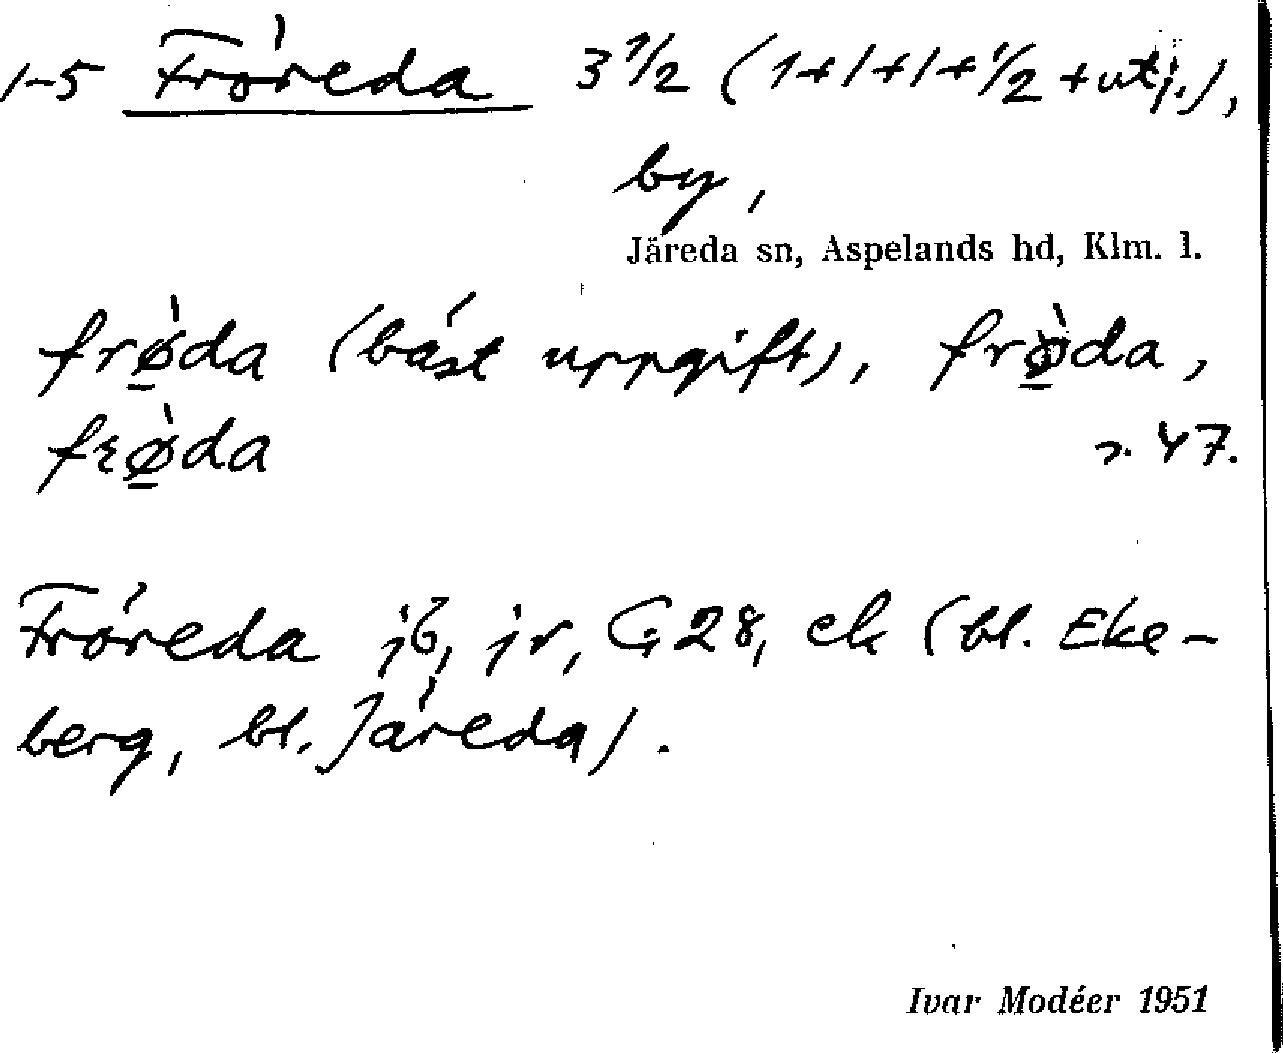 1-5 Fröreda 3 1/2 (1+1+1+1/2 +utj.),
by,
Järeda sn, Aspelands hd, Klm. l.
frø̱̀da (bäst uppgift), frø̱̀da,
fɾø̱̀da 47.
Fröreda jb, jr, G 28, ek (bl. Eke-
berg, bl. Järeda).
Ivar Modéer 1951